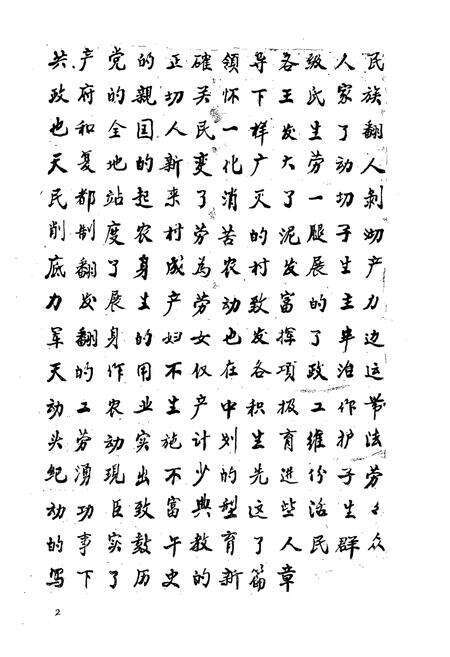 共产党的正確領导各級人民
政府的親切关怀下王氏家族
也和全国人民一样发生了翻
天复地的新变化广大劳动人
民都站起来了消灭了一切剝
削制度农村劳苦的泥腿子彻
底翻了身成為农村发展生产
力发展生产劳动致富的主力
军翻身的妇女也发挥了半边
天的作用不仅在各项政治运
动工农业生产中积极工作带
头劳动实施计划生育維护法
纪湧現出不少的先進份子劳
动功臣致富典型这些活生生
的事实鼓午教育了人民群众
写下了历史的新篇章
2